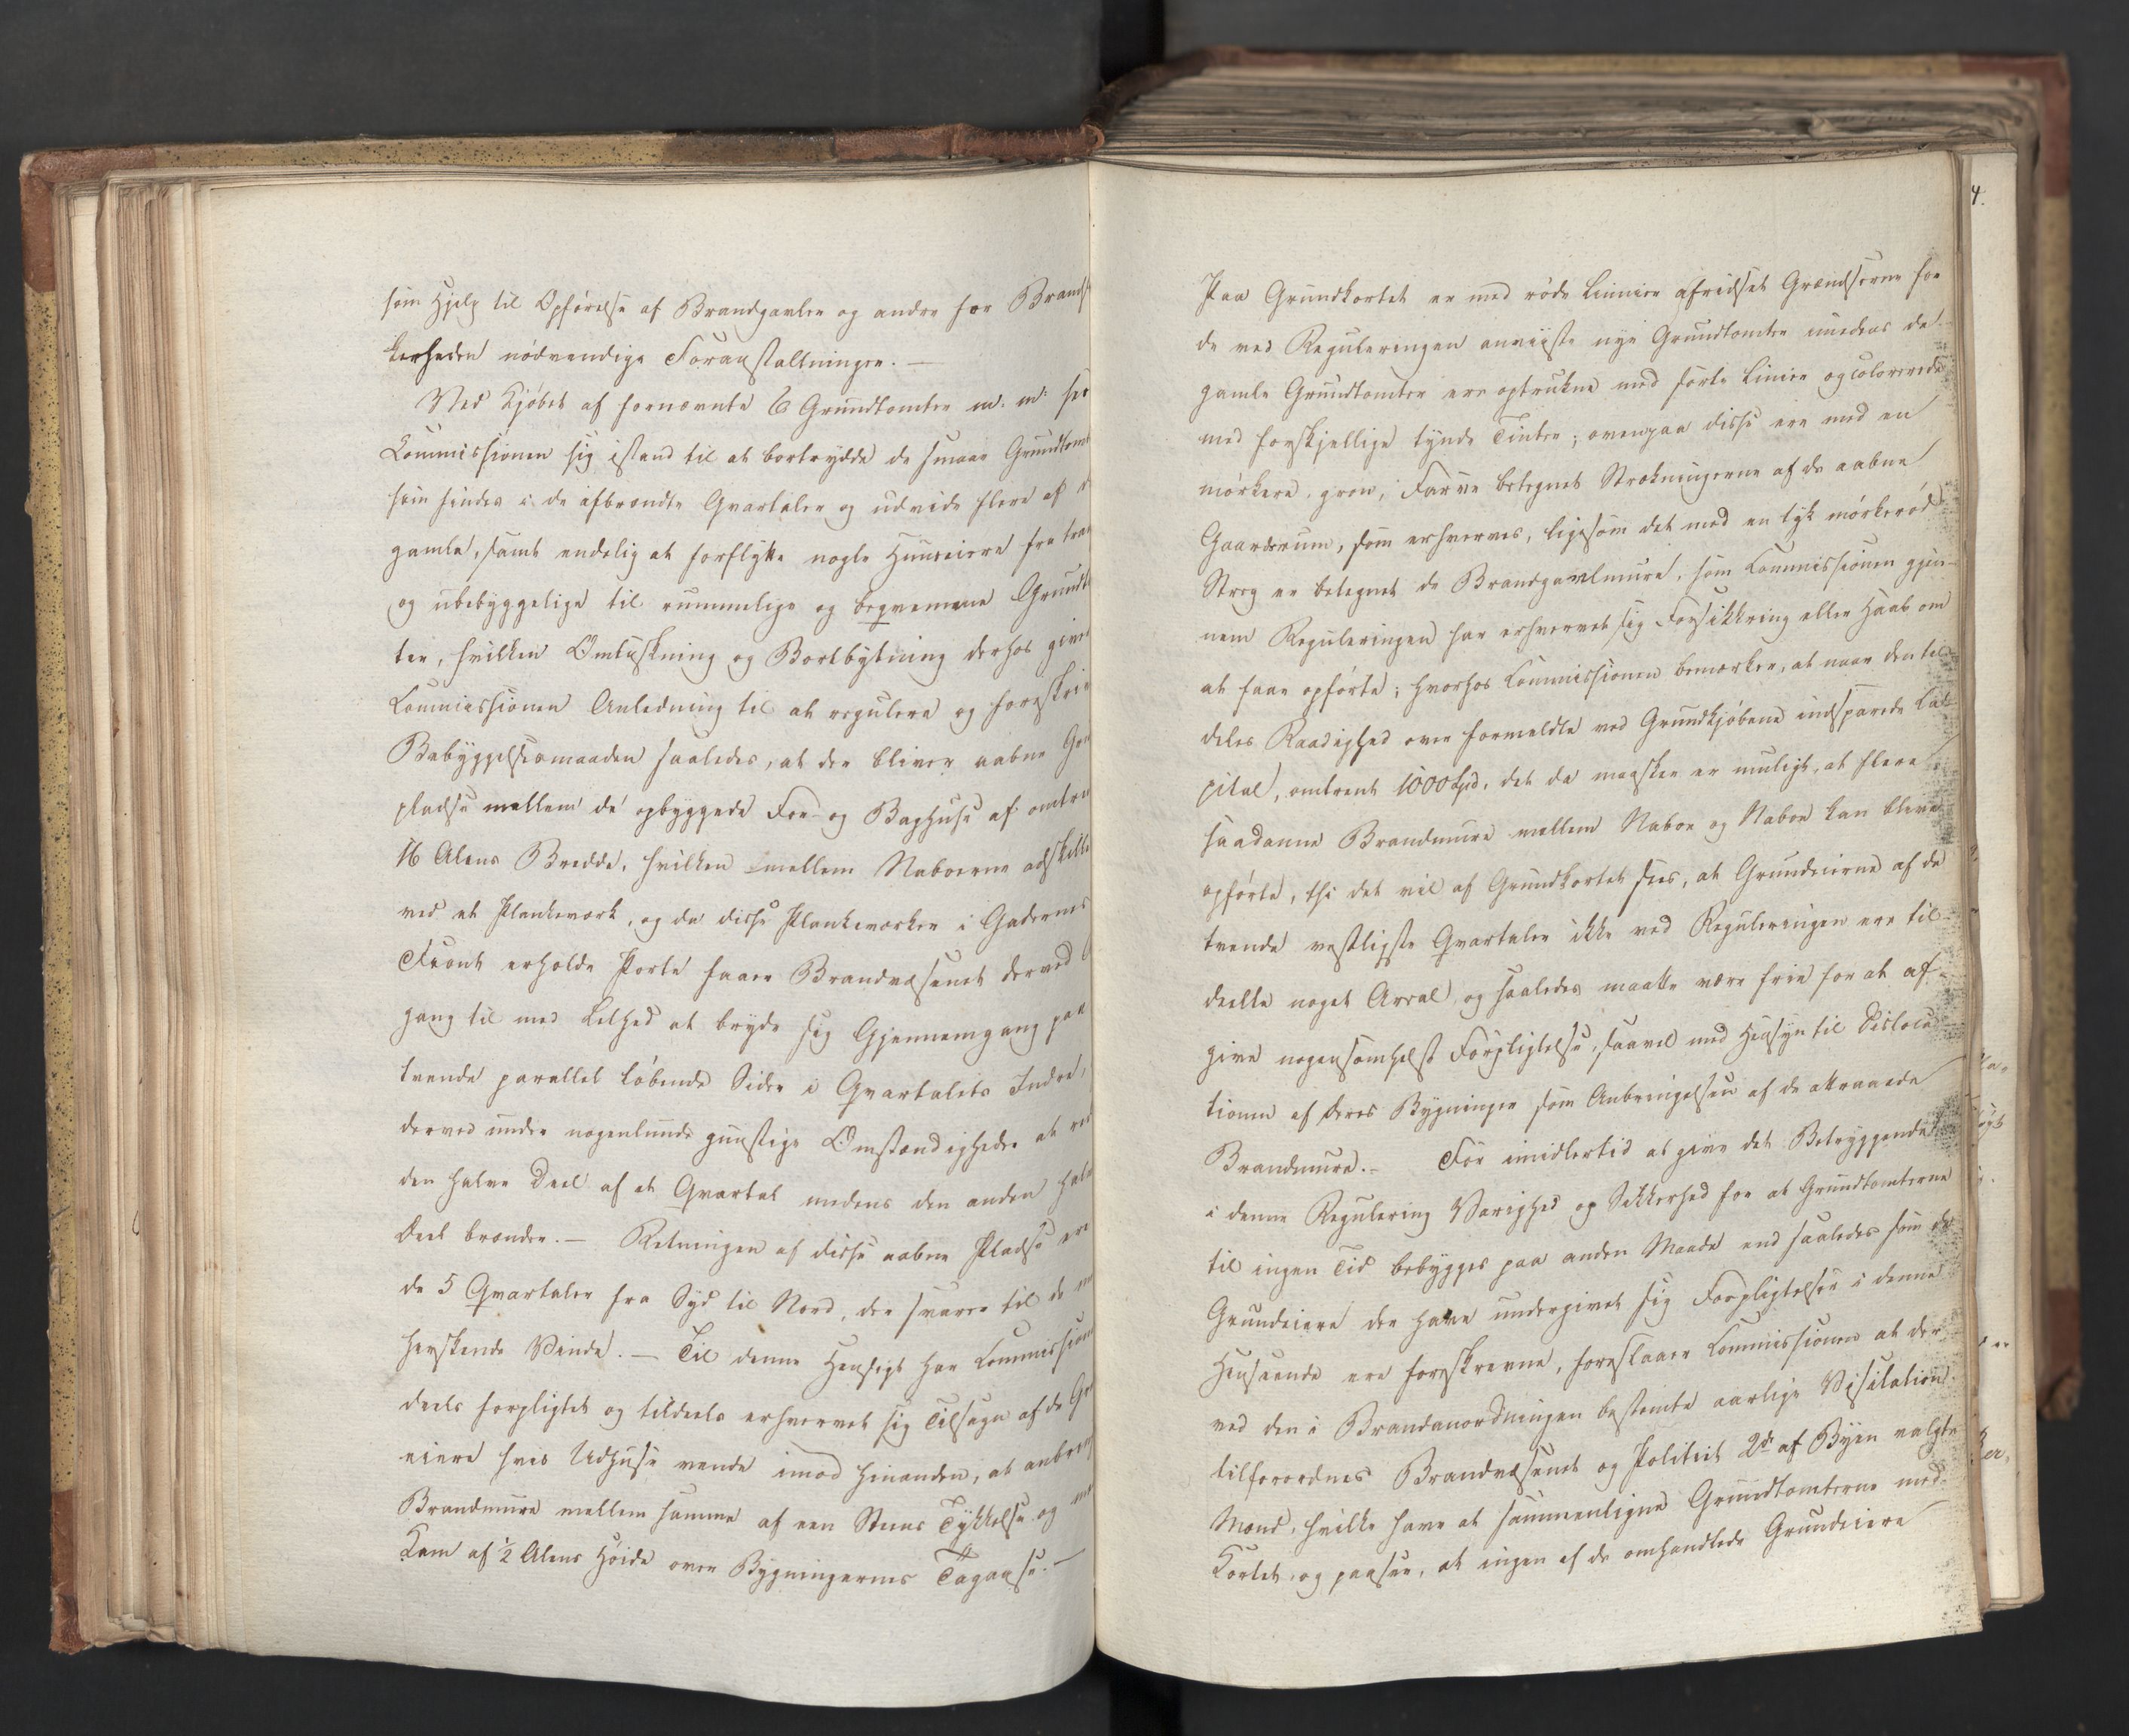 som Hjelp til Opførelse af Brandgavler og andre for Brandsik
kerheden nødvendige Foranstaltninger. —
Ved Kjøbet af fornævnte 6 Grundtomter m: m: seer
Commissionen sig istand til at bortrydde de smaae Grundtomt
som findes i de afbrændte Qvartaler og udvide flere af d
gamle, samt endelig at forflytte nogle Huuseiere fra tran
og ubebyggelige til rummelige og beqvemme Grundt
ter, hvilken Omtuskning og Bortbytning derhos giver
Commissionen Anledning til at regulere og foreskriv
Bebyggelsesmaaden saaledes, at der bliver aabne Gaa
pladse mellem de opbyggede For- og Baghuse af omtren
16 Alens Bredde, hvilken mellem Naboerne adskille
ved et Plankeværk, og da disse Plankeværker i Gadernes
Front erholde Porte faaer Brandvæsenet derved A
gang til med Lethed at bryde sig Gjennemgang paa
tvende parallel løbende Sider i Qvartalets Indre,
derved under nogenlunde gunstige Omstændigheder at red
den halve Deel af et Qvartal medens den anden halve
Deel brænder. — Retningen af disse aabne Pladse ere
de 5 Qvartaler fra Syd til Nord, der svarer til de me
herskende Vinde. — Til denne Hensigt har Commission
deels forpligtet og tildeels erhvervet sig Tilsagn af de Gr
eiere hvis Udhuse vende imod hinanden, at anbring
Brandmure mellem samme af een Steens Tykkelse og me
Kam af ½ Alens Høide over Bygningernes Tagaase. —
4.
Paa Grundkortet er med røde Linnier afridset Grændserne for
de ved Reguleringen anviiste nye Grundtomter imedens de
gamle Grundtomter ere optrukne med sorte Linier og colorerede
med forskjellige tynde Tinter; ovenpaa disse ere med en
mørkere, grøn, Farve betegnet Strækningerne af de aabne
Gaardsrum, som erhverves, ligesom det med en tyk mørkerød
Streg er betegnet de Brandgavlmure, som Commissionen gjen-
nem Reguleringen har erhvervet sig Forsikkring eller Haab om
at faae opførte; hvorhos Commissionen bemærker, at naar den til-
deles Raadighed over formeldte ved Grundkjøbene indsparede Ca-
pital, omtrent 1000 Spd, det da maaskee er muligt, at flere
saadanne Brandmure mellem Naboe og Naboe kan blive
opførte, thi det vil af Grundkortet sees, at Grundeierne af de
tvende vestligste Qvartaler ikke ved Reguleringen ere til-
deelte noget Areal, og saaledes maatte være frie for at af-
give nogensomhelst Forpligtelse, saavel med Hensyn til Disloca-
tionen af deres Bygninger som Anbringelsen af de attraaede
Brandmure. — For imidlertid at give det Betryggende
i denne Regulering Varighed og Sikkerhed for at Grundtomterne
til ingen Tid bebygges paa anden Maade end saaledes som de
Grundeiere der have undergivet sig Forpligtelser i denne
Henseende ere foreskrevne, foreslaaer Commissionen at der
ved den i Brandanordningen bestemte aarlige Visitation
tilforordnes Brandvæsenet og Politiet 2de af Byen valgte
Mænd, hvilke have at sammenligne Grundtomterne med
Kortet, og paasee, at ingen af de omhandlede Grundeiere